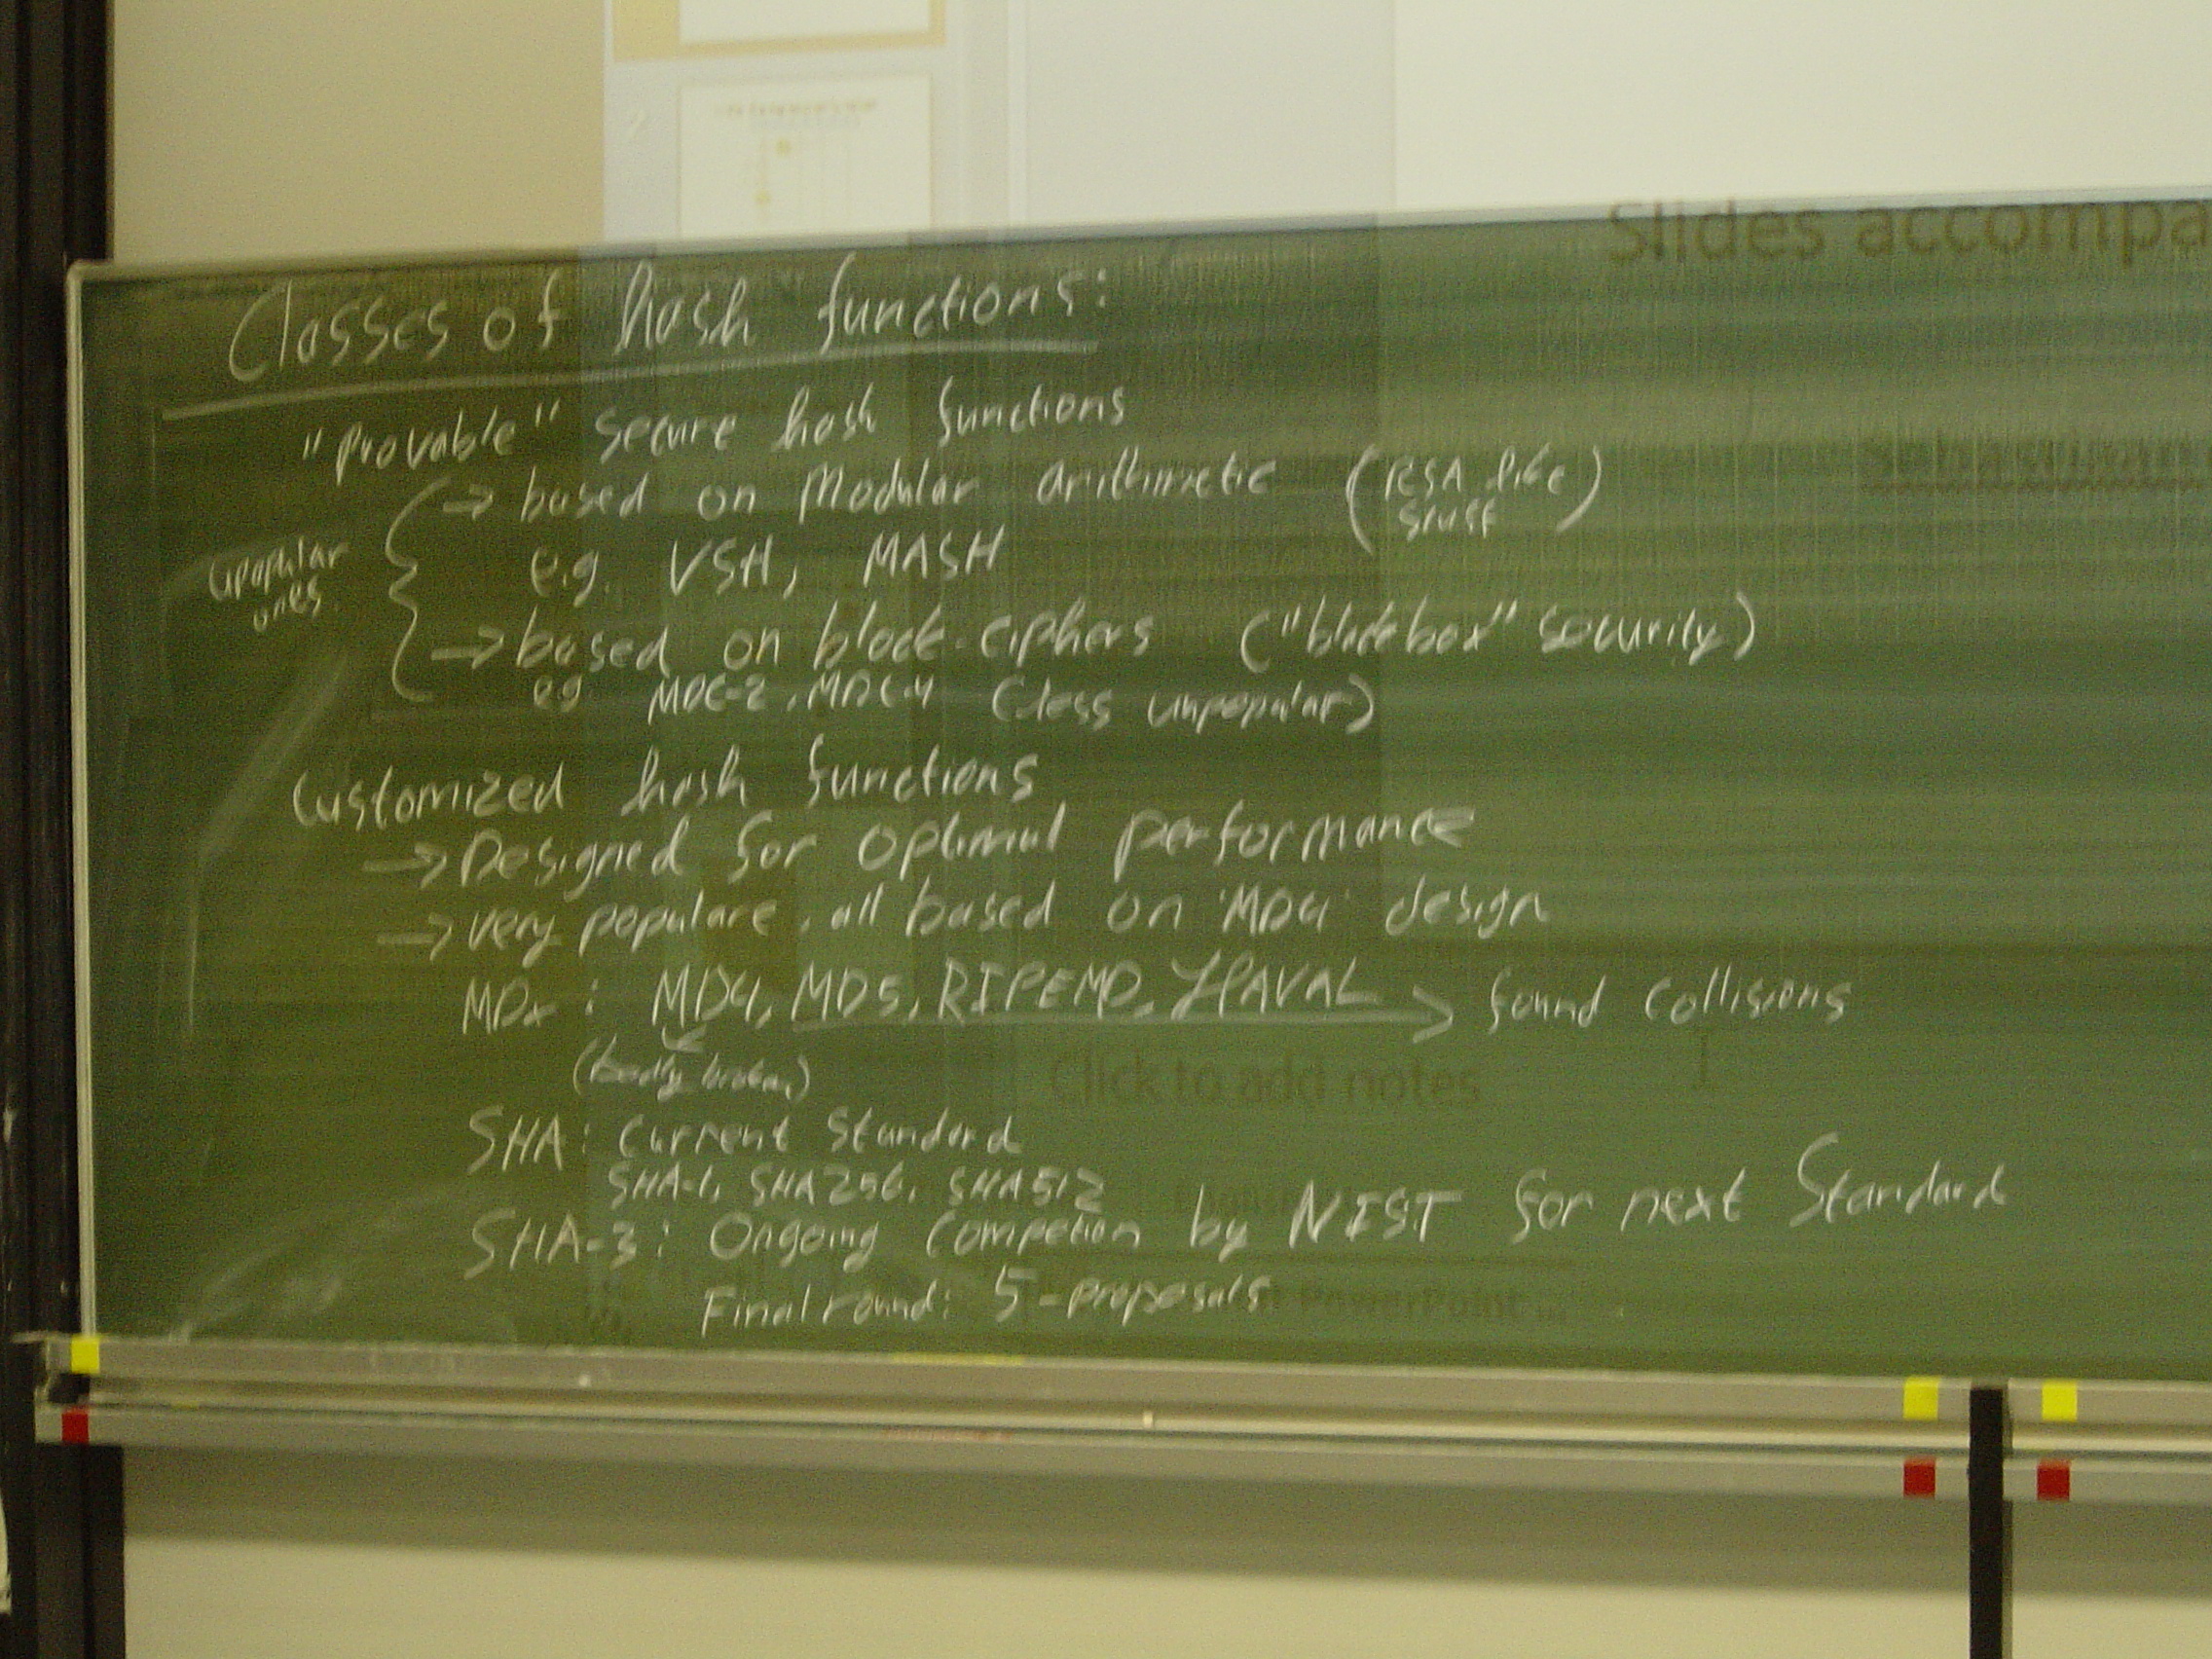 2
Slides accompa
Classes of hash functions:
"provable" secure hash functions
→ based on Modular arithmetic (RSA like stuff)
e.g. VSH, MASH
upopular
ones.
→ based on block-ciphers ("blackbox" security)
eg MDC-2, MDC-4 (less unpopular)
Customized hash functions
→ Designed for Optimal performance
→ very populare, all based on 'MD4' design
MDx: MD4, MD5, RIPEMD, HAVAL → found collisions
(badly broken)
Click to add notes
SHA: Current Standard
SHA-1, SHA256, SHA512
SHA-3: Ongoing Competion by NIST for next Standard
Final round: 5-proposals
PowerPoint ...